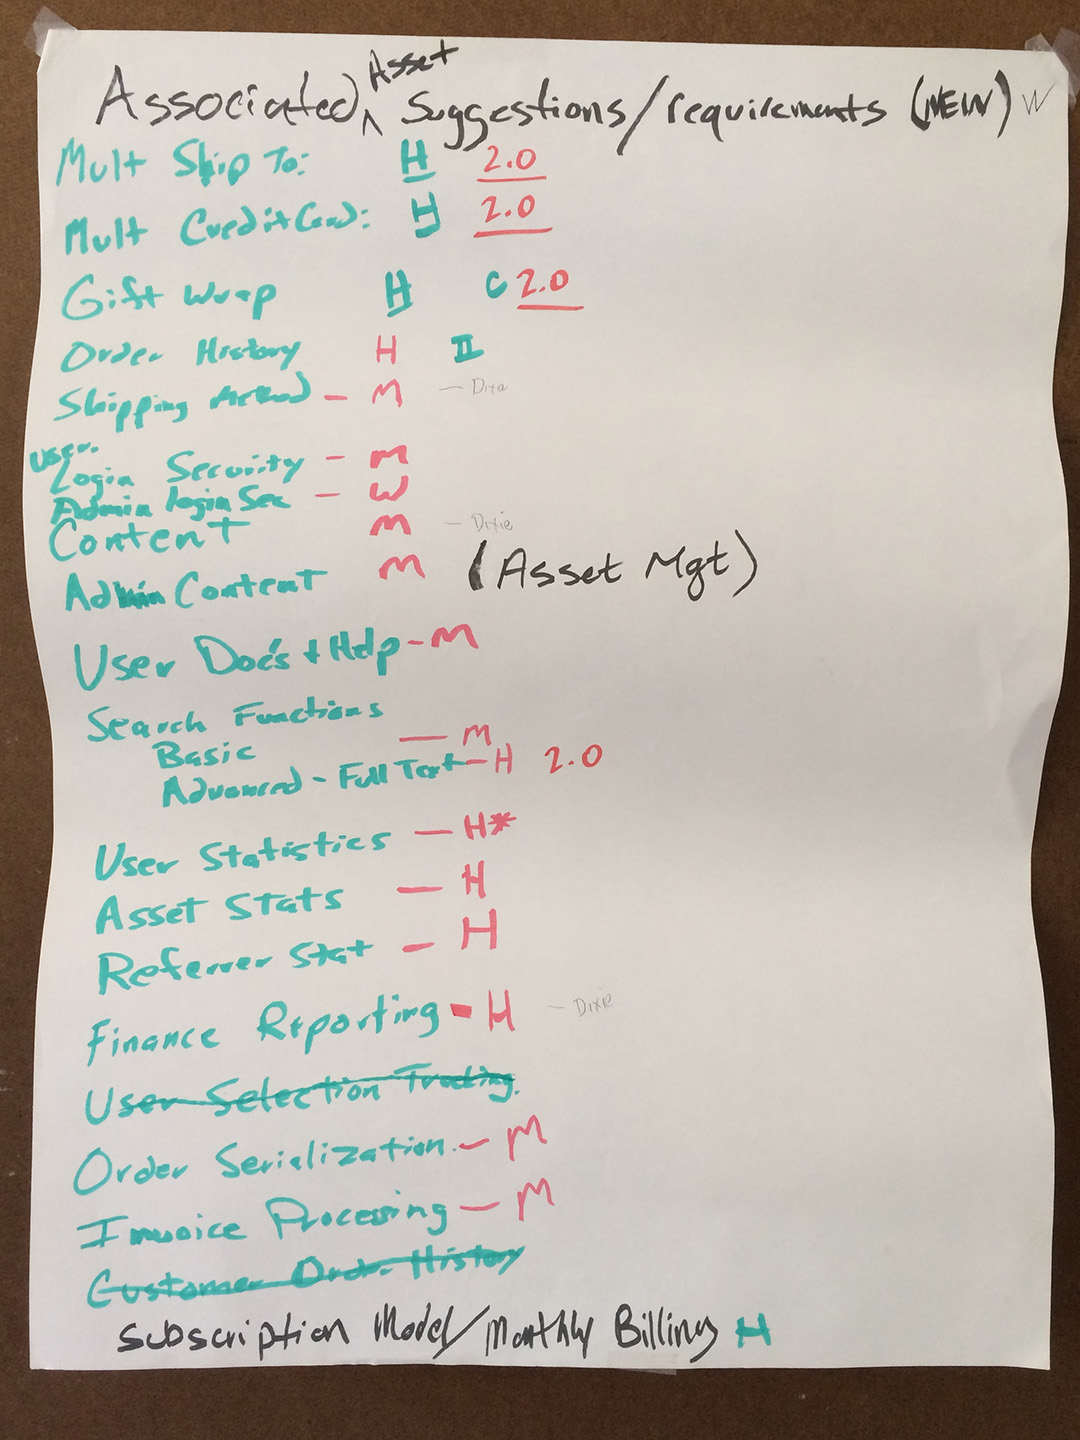 Associated ^ Asset Suggestions/requirements (NEW) W
Mult Ship To: H 2.0
Mult Credit Card: H 2.0
Gift Wrap H C 2.0
Order History H II
Shipping Method - M
User
Login Security - M
Admin login Sec - W
Content M - Dixie
Admin Content M (Asset Mgt)
User Doc's + Help - M
Search Functions
Basic — M
Advanced - Full Text - H 2.0
User Statistics — H*
Asset Stats — H
Referrer Stat - H
Finance Reporting - H - Dixie
User Selection Tracking.
Order Serialization. - M
Invoice Processing - M
Customer Order History
Subscription Model/Monthly Billing H